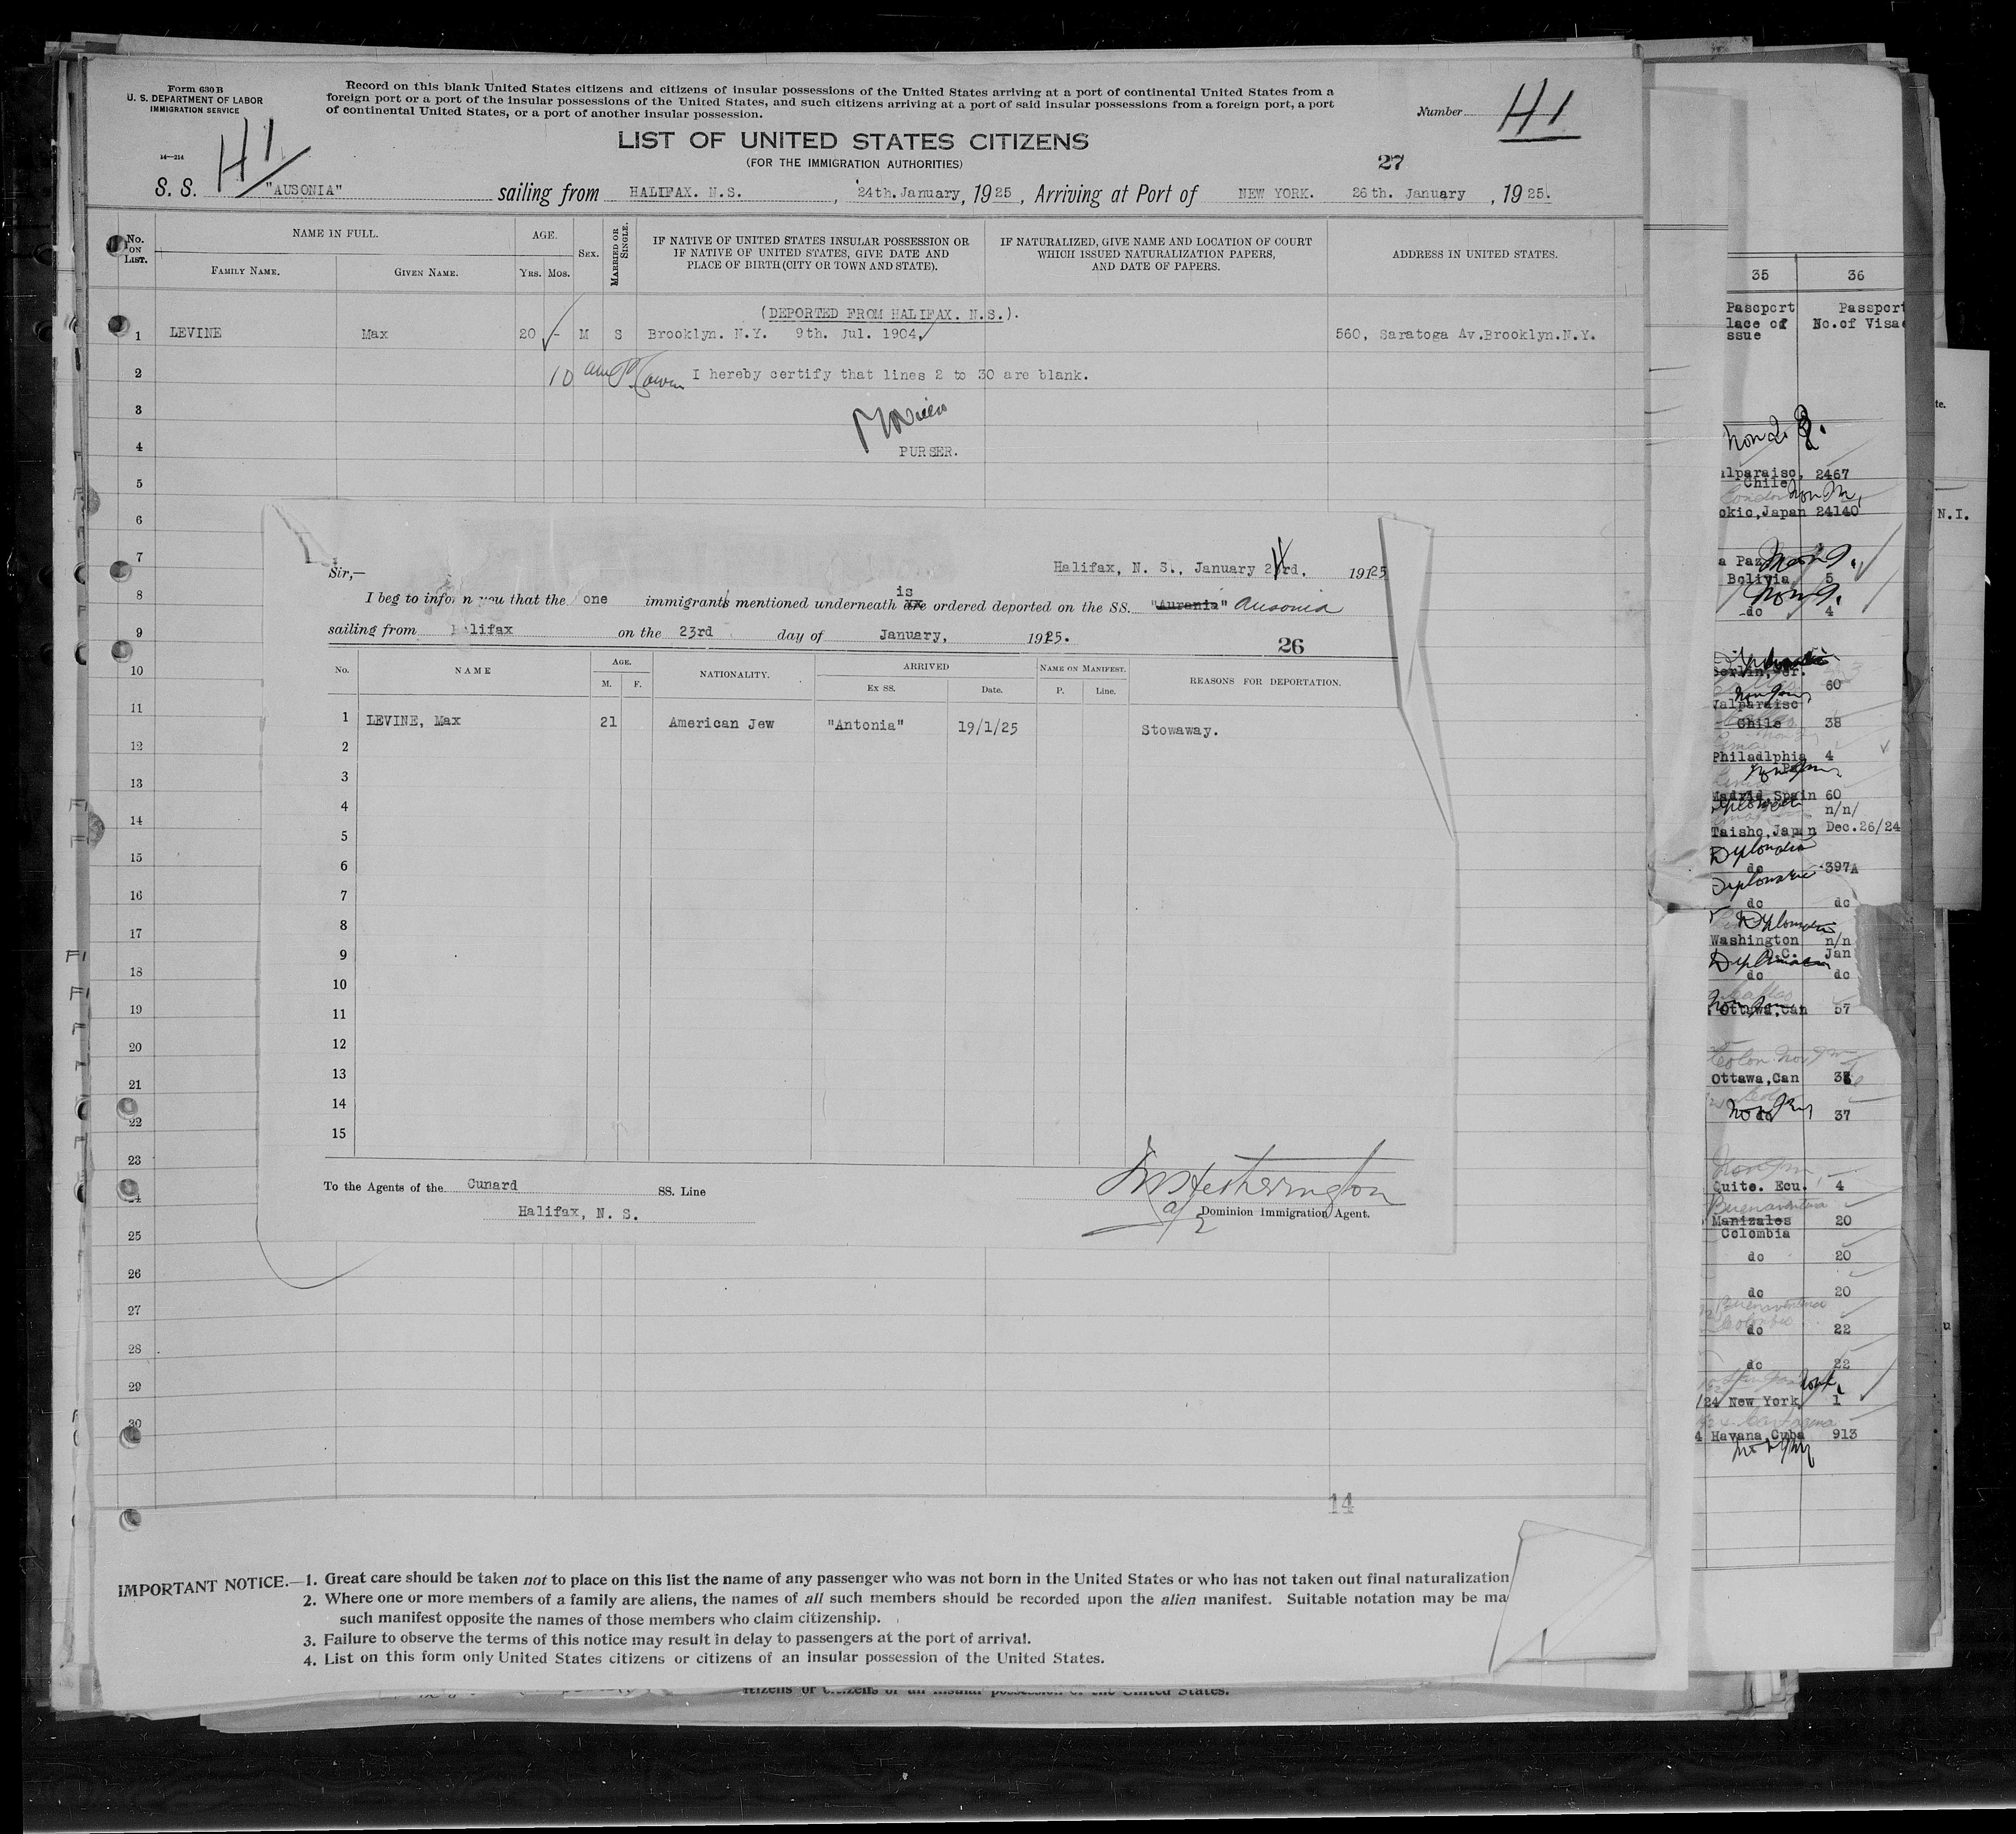 Form 630 B
U. S. DEPARTMENT OF LABOR
IMMIGRATION SERVICE
14—214
Record on this blank United States citizens and citizens of insular possessions of the United States arriving at a port of continental United States from a
foreign port or a port of the insular possessions of the United States, and such citizens arriving at a port of said insular possessions from a foreign port, a port
of continental United States, or a port of another insular possession.
Number H1
H1
LIST OF UNITED STATES CITIZENS
(FOR THE IMMIGRATION AUTHORITIES)
27
S. S. "AUSONIA" sailing from HALIFAX. N.S. , 24th.January, 1925, Arriving at Port of NEW YORK. 26th. January , 1925.
No. ON LIST.
NAME IN FULL.
FAMILY NAME.
GIVEN NAME.
AGE.
YRS. MOS.
SEX.
MARRIED OR SINGLE.
IF NATIVE OF UNITED STATES INSULAR POSSESSION OR
IF NATIVE OF UNITED STATES, GIVE DATE AND
PLACE OF BIRTH (CITY OR TOWN AND STATE).
IF NATURALIZED, GIVE NAME AND LOCATION OF COURT
WHICH ISSUED NATURALIZATION PAPERS,
AND DATE OF PAPERS.
ADDRESS IN UNITED STATES.
(DEPORTED FROM HALIFAX. N.S.).
1 LEVINE Max 20 - M S Brooklyn. N.Y. 9th. Jul. 1904. 560, Saratoga Av.Brooklyn.N.Y.
2 I hereby certify that lines 2 to 30 are blank.
3
4 PURSER.
5
6
7
8
9
10
11
12
13
14
15
16
17
18
19
20
21
22
23
24
25
26
27
28
29
30
Sir,—
Halifax, N. S., January 23rd. 1925
I beg to inform you that the one immigrants mentioned underneath are is ordered deported on the SS. "Aurania" Ausonia
sailing from Halifax on the 23rd day of January, 1925.
26
No.
NAME
AGE.
M. F.
NATIONALITY.
ARRIVED
Ex SS. Date.
NAME ON MANIFEST.
P. Line.
REASONS FOR DEPORTATION.
1 LEVINE, Max 21 American Jew "Antonia" 19/1/25 Stowaway.
2
3
4
5
6
7
8
9
10
11
12
13
14
15
To the Agents of the Cunard SS. Line
Halifax, N. S.
Hetherington
Dominion Immigration Agent.
14
IMPORTANT NOTICE.—1. Great care should be taken not to place on this list the name of any passenger who was not born in the United States or who has not taken out final naturalization
2. Where one or more members of a family are aliens, the names of all such members should be recorded upon the alien manifest. Suitable notation may be ma
such manifest opposite the names of those members who claim citizenship.
3. Failure to observe the terms of this notice may result in delay to passengers at the port of arrival.
4. List on this form only United States citizens or citizens of an insular possession of the United States.
35 36
Passport Passport
lace of No.of Visa
ssue
alparaiso, 2467
Chile
okio,Japan 24140
N.I.
a Paz
Bolivia 5
do 4
60
Valparaiso
Chile 38
Philadlphia 4
Madrid,Spain 60
n/n/
Taisho,Japan Dec.26/24
Diplomatic
do 397A
Diplomatic
do do
Diplomatic
Washington n/n
D.C. Jan
do do
Ottawa,Can 57
Ottawa,Can
37
Quito. Ecu. 4
Buenaventura
Manizales 20
Colombia
do 20
do 20
Buenaventura
do 22
do 22
/24 New York 1
Cartagena
4 Havana Cuba 913